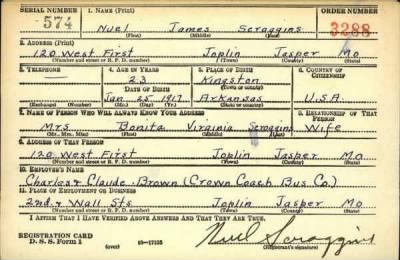 SERIAL NUMBER 1. NAME (Print) ORDER NUMBER
574 Nuel James Scroggins 3288
(First) (Middle) (Last)
2. ADDRESS (Print)
120 West First Joplin Jasper Mo
(Number and street or R. F. D. number) (Town) (County) (State)
3. TELEPHONE 4. AGE IN YEARS 5. PLACE OF BIRTH 6. COUNTRY OF CITIZENSHIP
23 Kingston
DATE OF BIRTH (Town or county)
Jan. 25 1917 Arkansas U.S.A
(Exchange) (Number) (Mo.) (Day) (Yr.) (State or country)
7. NAME OF PERSON WHO WILL ALWAYS KNOW YOUR ADDRESS 8. RELATIONSHIP OF THAT PERSON
Mrs. Bonita Virginia Scroggins Wife
(Mr., Mrs., Miss) (First) (Middle) (Last)
9. ADDRESS OF THAT PERSON
120 West First Joplin Jasper Mo
(Number and street or R. F. D. number) (Town) (County) (State)
10. EMPLOYER'S NAME
Charles & Claude Brown (Crown Coach Bus Co.)
11. PLACE OF EMPLOYMENT OR BUSINESS
2nd & Wall Sts Joplin Jasper Mo
(Number and street or R. F. D. number) (Town) (County) (State)
I AFFIRM THAT I HAVE VERIFIED ABOVE ANSWERS AND THAT THEY ARE TRUE.
REGISTRATION CARD
D. S. S. Form 1 (over) 16—17105 Nuel Scroggins
(Registrant's signature)